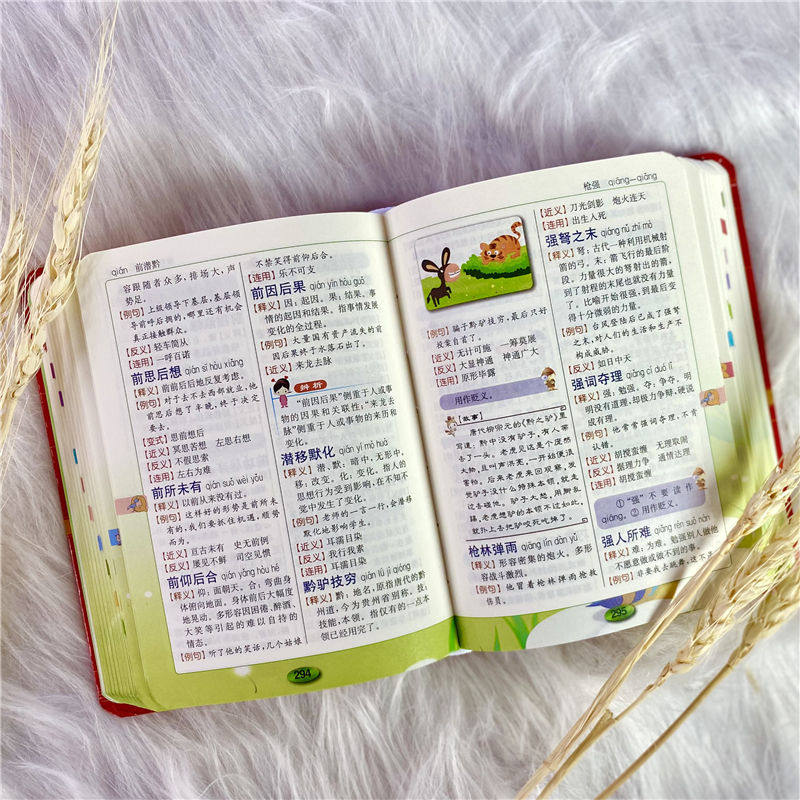 qián 前潜黔
容跟随者众多,排场大,声
势足。
【例句】上级领导下基层,基层领
导前呼后拥的,哪里还有机会
真正接触群众。
【反义】轻车简从
【连用】一呼百诺
前思后想 qián sī hòu xiǎng
【释义】前前后后地反复考虑。
【例句】对于去不去西部就业,他
前思后想了半晚,终于决定
要去。
【变式】思前想后
【近义】冥思苦想 左思右想
【反义】不假思索
【连用】左右为难
前所未有 qián suǒ wèi yǒu
【释义】以前从来没有过。
【例句】这样好的形势是前所未
有的,我们要抓住机遇,顺势
而为。
【近义】亘古未有 史无前例
【反义】屡见不鲜 司空见惯
前仰后合 qián yǎng hòu hé
【释义】仰:面朝天。合:弯曲身
体俯向地面。身体前后大幅度
地晃动。多形容因困倦、醉酒、
大笑等引起的难以自持的
情态。
【例句】听了他的笑话,几个姑娘
不禁笑得前仰后合。
【连用】乐不可支
前因后果 qián yīn hòu guǒ
【释义】因:起因。果:结果。事
情的起因和结果。指事情发展
变化的全过程。
【例句】大量国有资产流失的前
因后果终于水落石出了。
【近义】来龙去脉
辨析
“前因后果”侧重于人或事
物的因果和关联性;“来龙去
脉”侧重于人或事物的来历和
变化。
潜移默化 qián yí mò huà
【释义】潜、默:暗中,无形中。
移:改变。化:变化。指人的
思想行为受到影响,在不知不
觉中发生了变化。
【例句】老师的一言一行,会潜移
默化地影响学生。
【近义】耳濡目染
【反义】我行我素
【连用】耳濡目染
黔驴技穷 qián lǘ jì qióng
【释义】黔:地名,原指唐代的黔
州道,今为贵州省别称。技:
技能,本领。指仅有的一点本
领已经用完了。
294
枪强 qiāng—qiǎng
【例句】骗子黔驴技穷,最后只好
投案自首了。
【近义】无计可施 一筹莫展
【反义】大显神通 神通广大
【连用】原形毕露
用作贬义。
故事
唐代柳宗元的《黔之驴》里
写道:黔中没有驴子,有人带
去了一头。老虎见这是个庞然
大物,且叫声洪亮,一开始很
害怕。后来老虎来回观察,发
觉驴子没什么特殊本领,就走
过去碰他。驴子大怒,用脚乱
踢,老虎想驴的本领不过如此,
就扑上去把驴咬死吃掉了。
枪林弹雨 qiāng lín dàn yǔ
【释义】形容密集的炮火。多形
容战斗激烈。
【例句】他冒着枪林弹雨抢救
伤员。
【近义】刀光剑影 炮火连天
【连用】出生入死
强弩之末 qiáng nǔ zhī mò
【释义】弩:古代一种利用机械射
箭的弓。末:箭飞行的最后阶
段。力量很大的弩射出的箭,
到了射程的末尾也就没有力量
了。比喻开始很强,到最后变
得十分微弱的力量。
【例句】台风登陆后已成了强弩
之末,对人们的生活和生产不
构成威胁。
【反义】如日中天
强词夺理 qiǎng cí duó lǐ
【释义】强:勉强。夺:争夺。明
明没有道理,却极力争辩,硬说
成有理。
【例句】他常常强词夺理,不肯
认错。
【近义】胡搅蛮缠 无理取闹
【反义】据理力争 通情达理
【连用】胡搅蛮缠
①“强”不要读作
qiáng。②用作贬义。
强人所难 qiǎng rén suǒ nán
【释义】难:为难。勉强别人做他
不愿意做或做不到的事。
【例句】非要我去跳舞,这不是
295